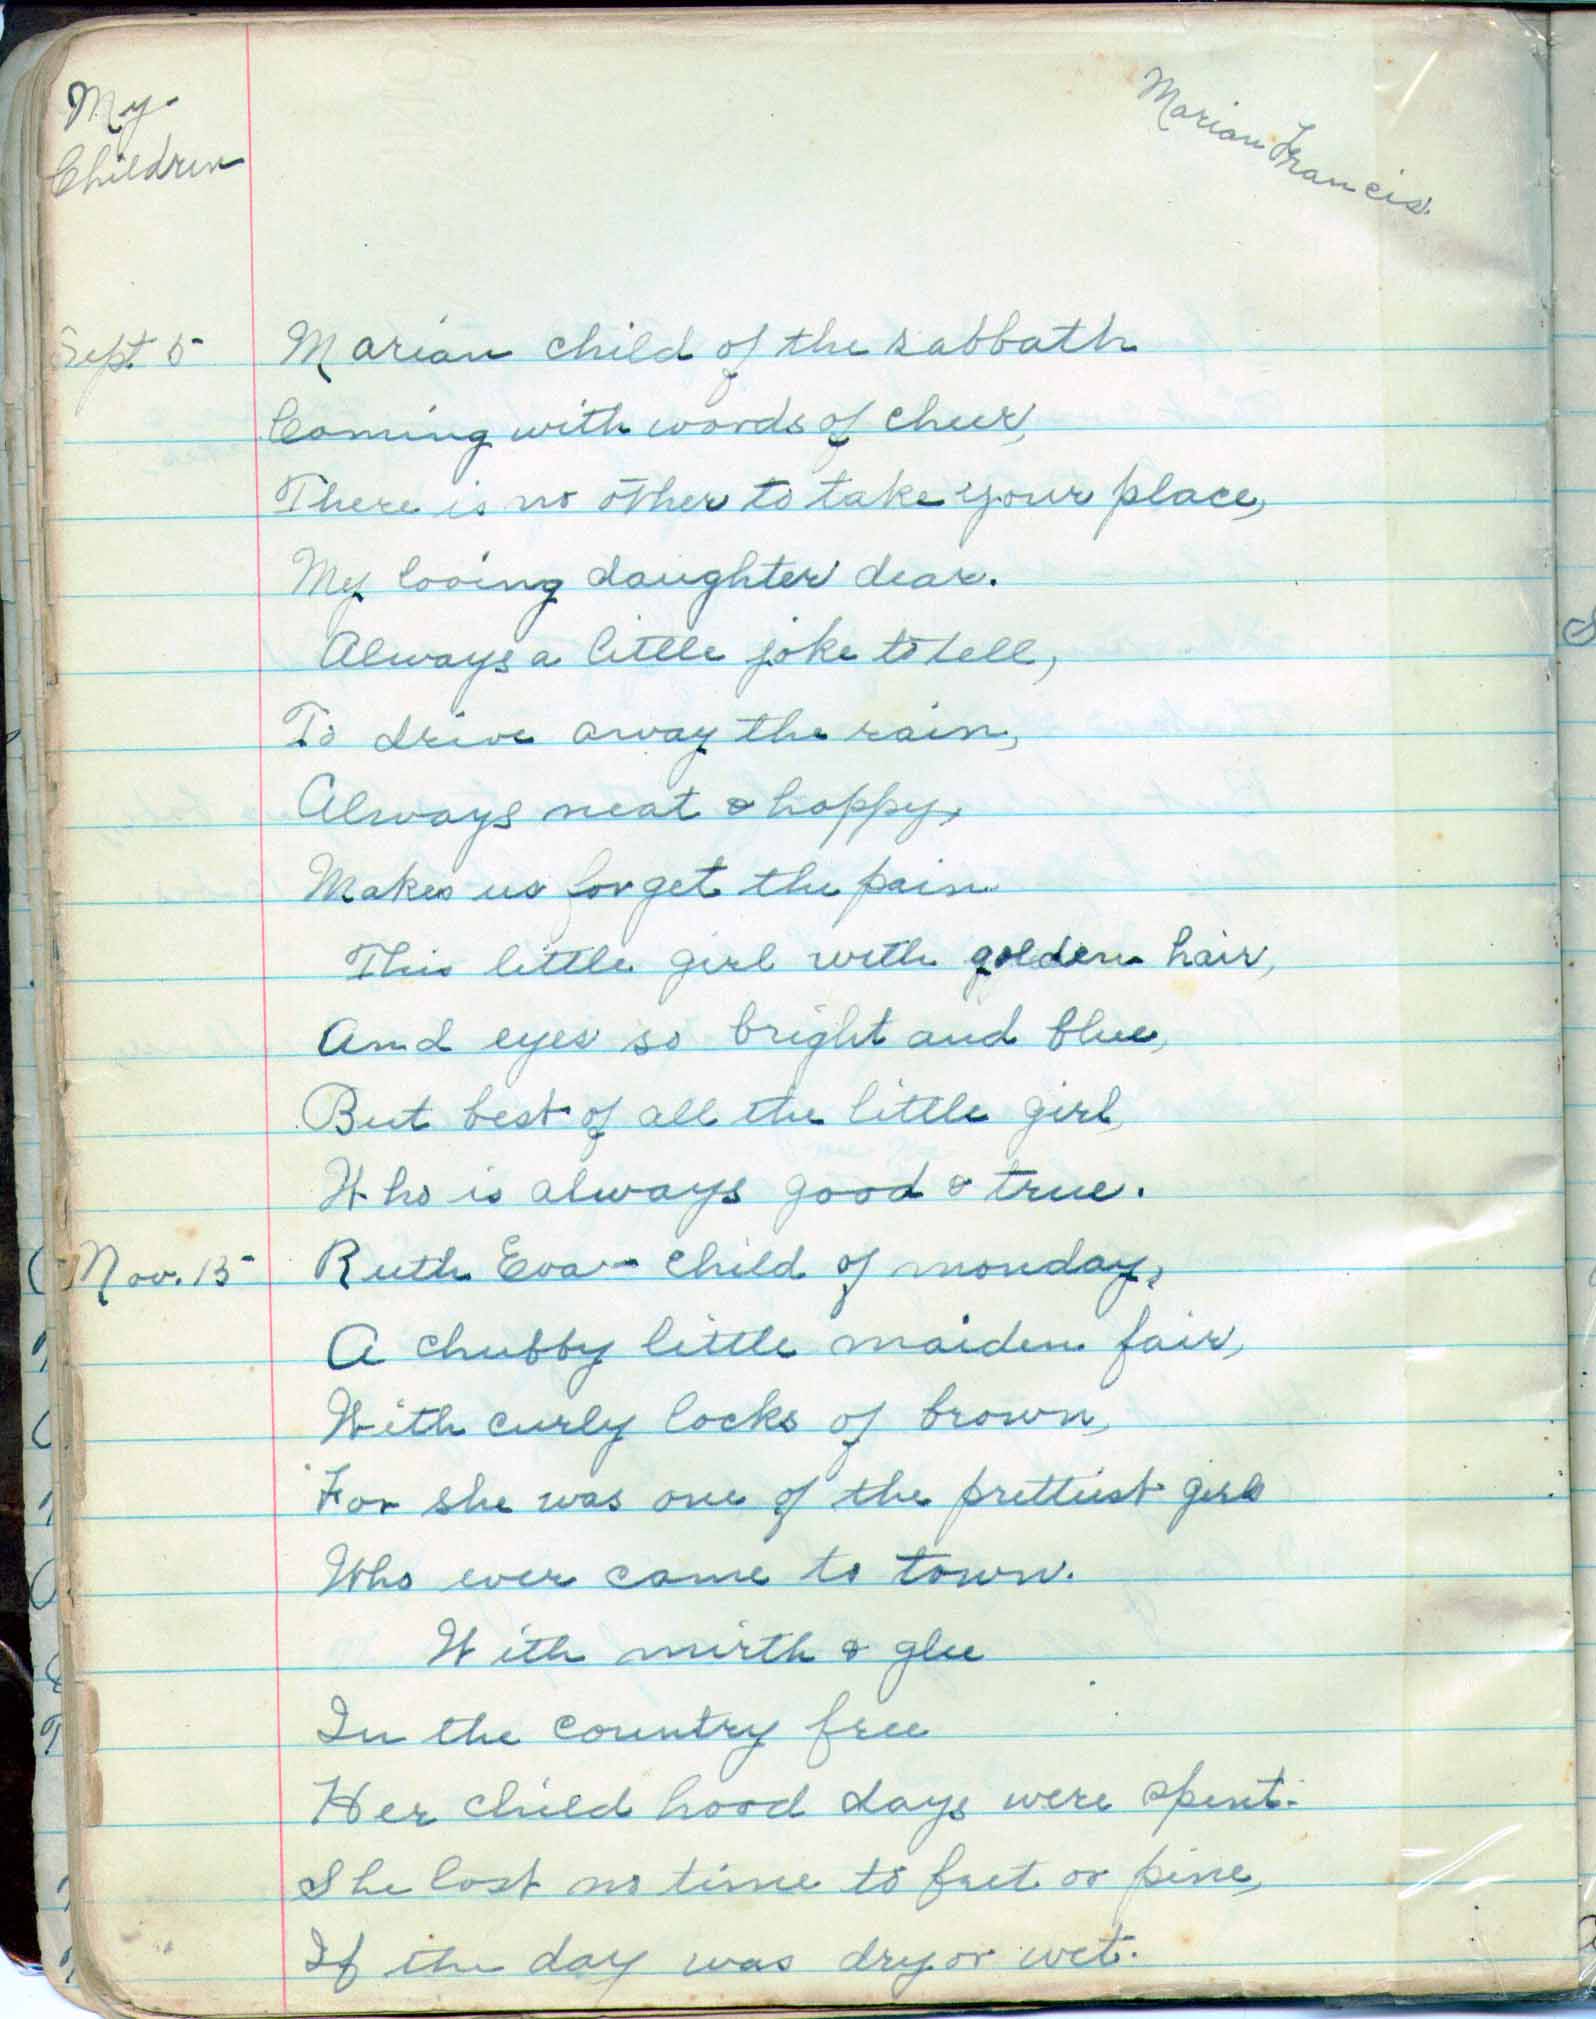 My
Children
Marian Francis.
Sept. 5
Marian child of the sabbath
Coming with words of cheer,
There is no other to take your place,
My loving daughter dear.
Always a little joke to tell,
To drive away the rain,
Always neat & happy,
Makes us forget the pain
This little girl with golden hair,
And eyes so bright and blue,
But best of all the little girl,
Who is always good & true.
Nov. 15
Ruth Eva - child of monday,
A chubby little maiden fair,
With curly locks of brown,
For she was one of the prettiest girls
Who ever came to town.
With mirth & glee
In the country free
Her child hood days were spent.
She lost no time to fret or pine,
If the day was dry or wet.